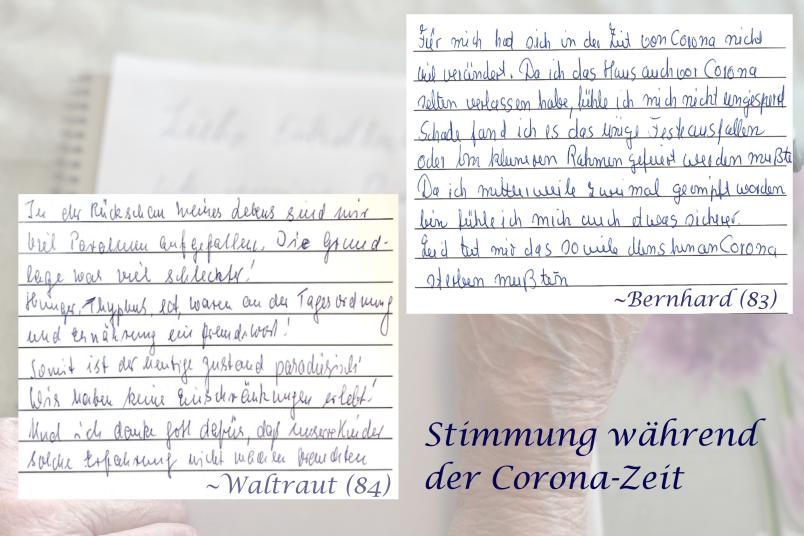 Für mich hat sich in der Zeit von Corona nicht
viel verändert. Da ich das Haus auch vor Corona
selten verlassen habe, fühle ich mich nicht eingesperrt
Schade fand ich es das einige Feste ausfallen
oder im kleineren Rahmen gefeiert werden mußte
Da ich mittlerweile zweimal geimpft worden
bin fühle ich mich auch etwas sicherer.
Leid tut mir das so viele an Corona
sterben mußten
~Bernhard (83)
In der Rückschau meines Lebens sind mir
viel aufgefallen. Die Grund-
lage war viel schlechter!
Hunger, Thyphus, ect, waren an der Tagesordnung
und Ernährung ein Fremdwort!
Somit ist der heutige Zustand paradisisch!
Wir haben keine Einschränkungen erlebt!
Und ich danke Gott dafür, daß unsere Kinder
solche Erfahrung nicht machen brauchten
~Waltraut (84)
Stimmung während
der Corona-Zeit